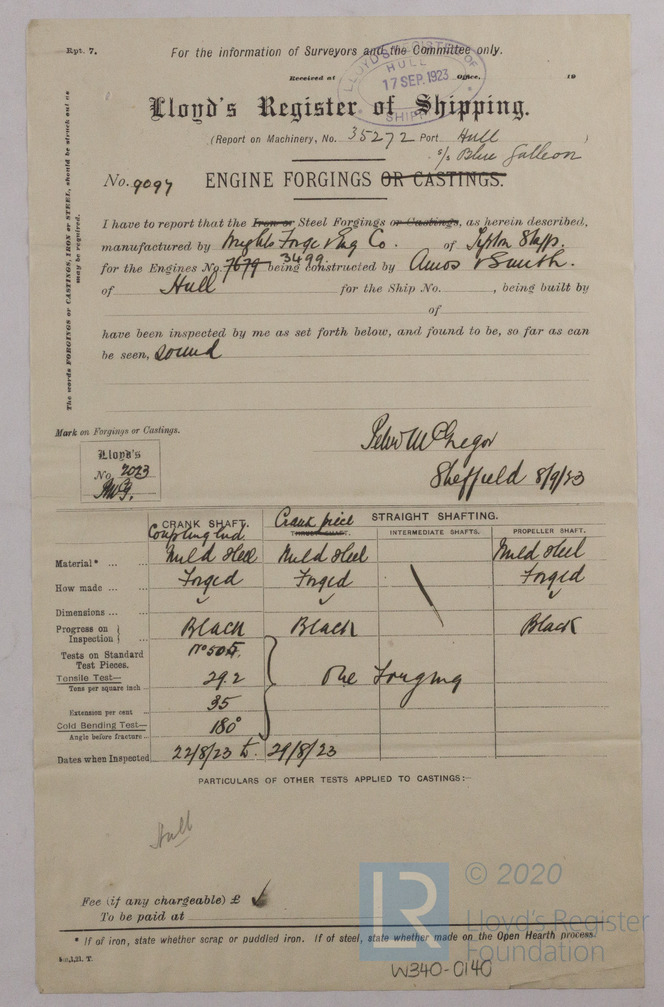 Rpt. 7.
For the information of Surveyors and the Committee only.
Received at Office, 19
LLOYD'S REGISTER OF SHIPPING
HULL
17 SEP. 1923
Lloyd's Register of Shipping.
(Report on Machinery, No. 35272 Port Hull )
s/s Blue Galleon
No. 9097 ENGINE FORGINGS OR CASTINGS.
The words FORGINGS or CASTINGS, IRON or STEEL, should be struck out as may be required.
I have to report that the Iron or Steel Forgings or Castings, as herein described,
manufactured by Wrights Forge & Eng Co. of Tipton Staffs.
for the Engines No. 7679 3499 being constructed by Amos & Smith.
of Hull for the Ship No. , being built by
of
have been inspected by me as set forth below, and found to be, so far as can
be seen, sound
Mark on Forgings or Castings.
Lloyd's
No. 2023
PMcG.
Peter McGregor
Sheffield 8/9/23
CRANK SHAFT. Crank piece STRAIGHT SHAFTING.
Coupling end THRUST SHAFT. INTERMEDIATE SHAFTS. PROPELLER SHAFT.
Material* ... ... Mild Steel Mild Steel Mild Steel
How made ... ... Forged Forged Forged
Dimensions ... ...
Progress on Inspection } ... Black Black Black
Tests on Standard Test Pieces. No 505
Tensile Test— Tons per square inch ... 29.2 One Forging
Extension per cent ... 35
Cold Bending Test— Angle before fracture ... 180°
Dates when Inspected 22/8/23 to 29/8/23
PARTICULARS OF OTHER TESTS APPLIED TO CASTINGS:—
Hull
Fee (if any chargeable) £
To be paid at
* If of iron, state whether scrap or puddled iron. If of steel, state whether made on the Open Hearth process.
W340-0140
LR
© 2020
Lloyd's Register
Foundation